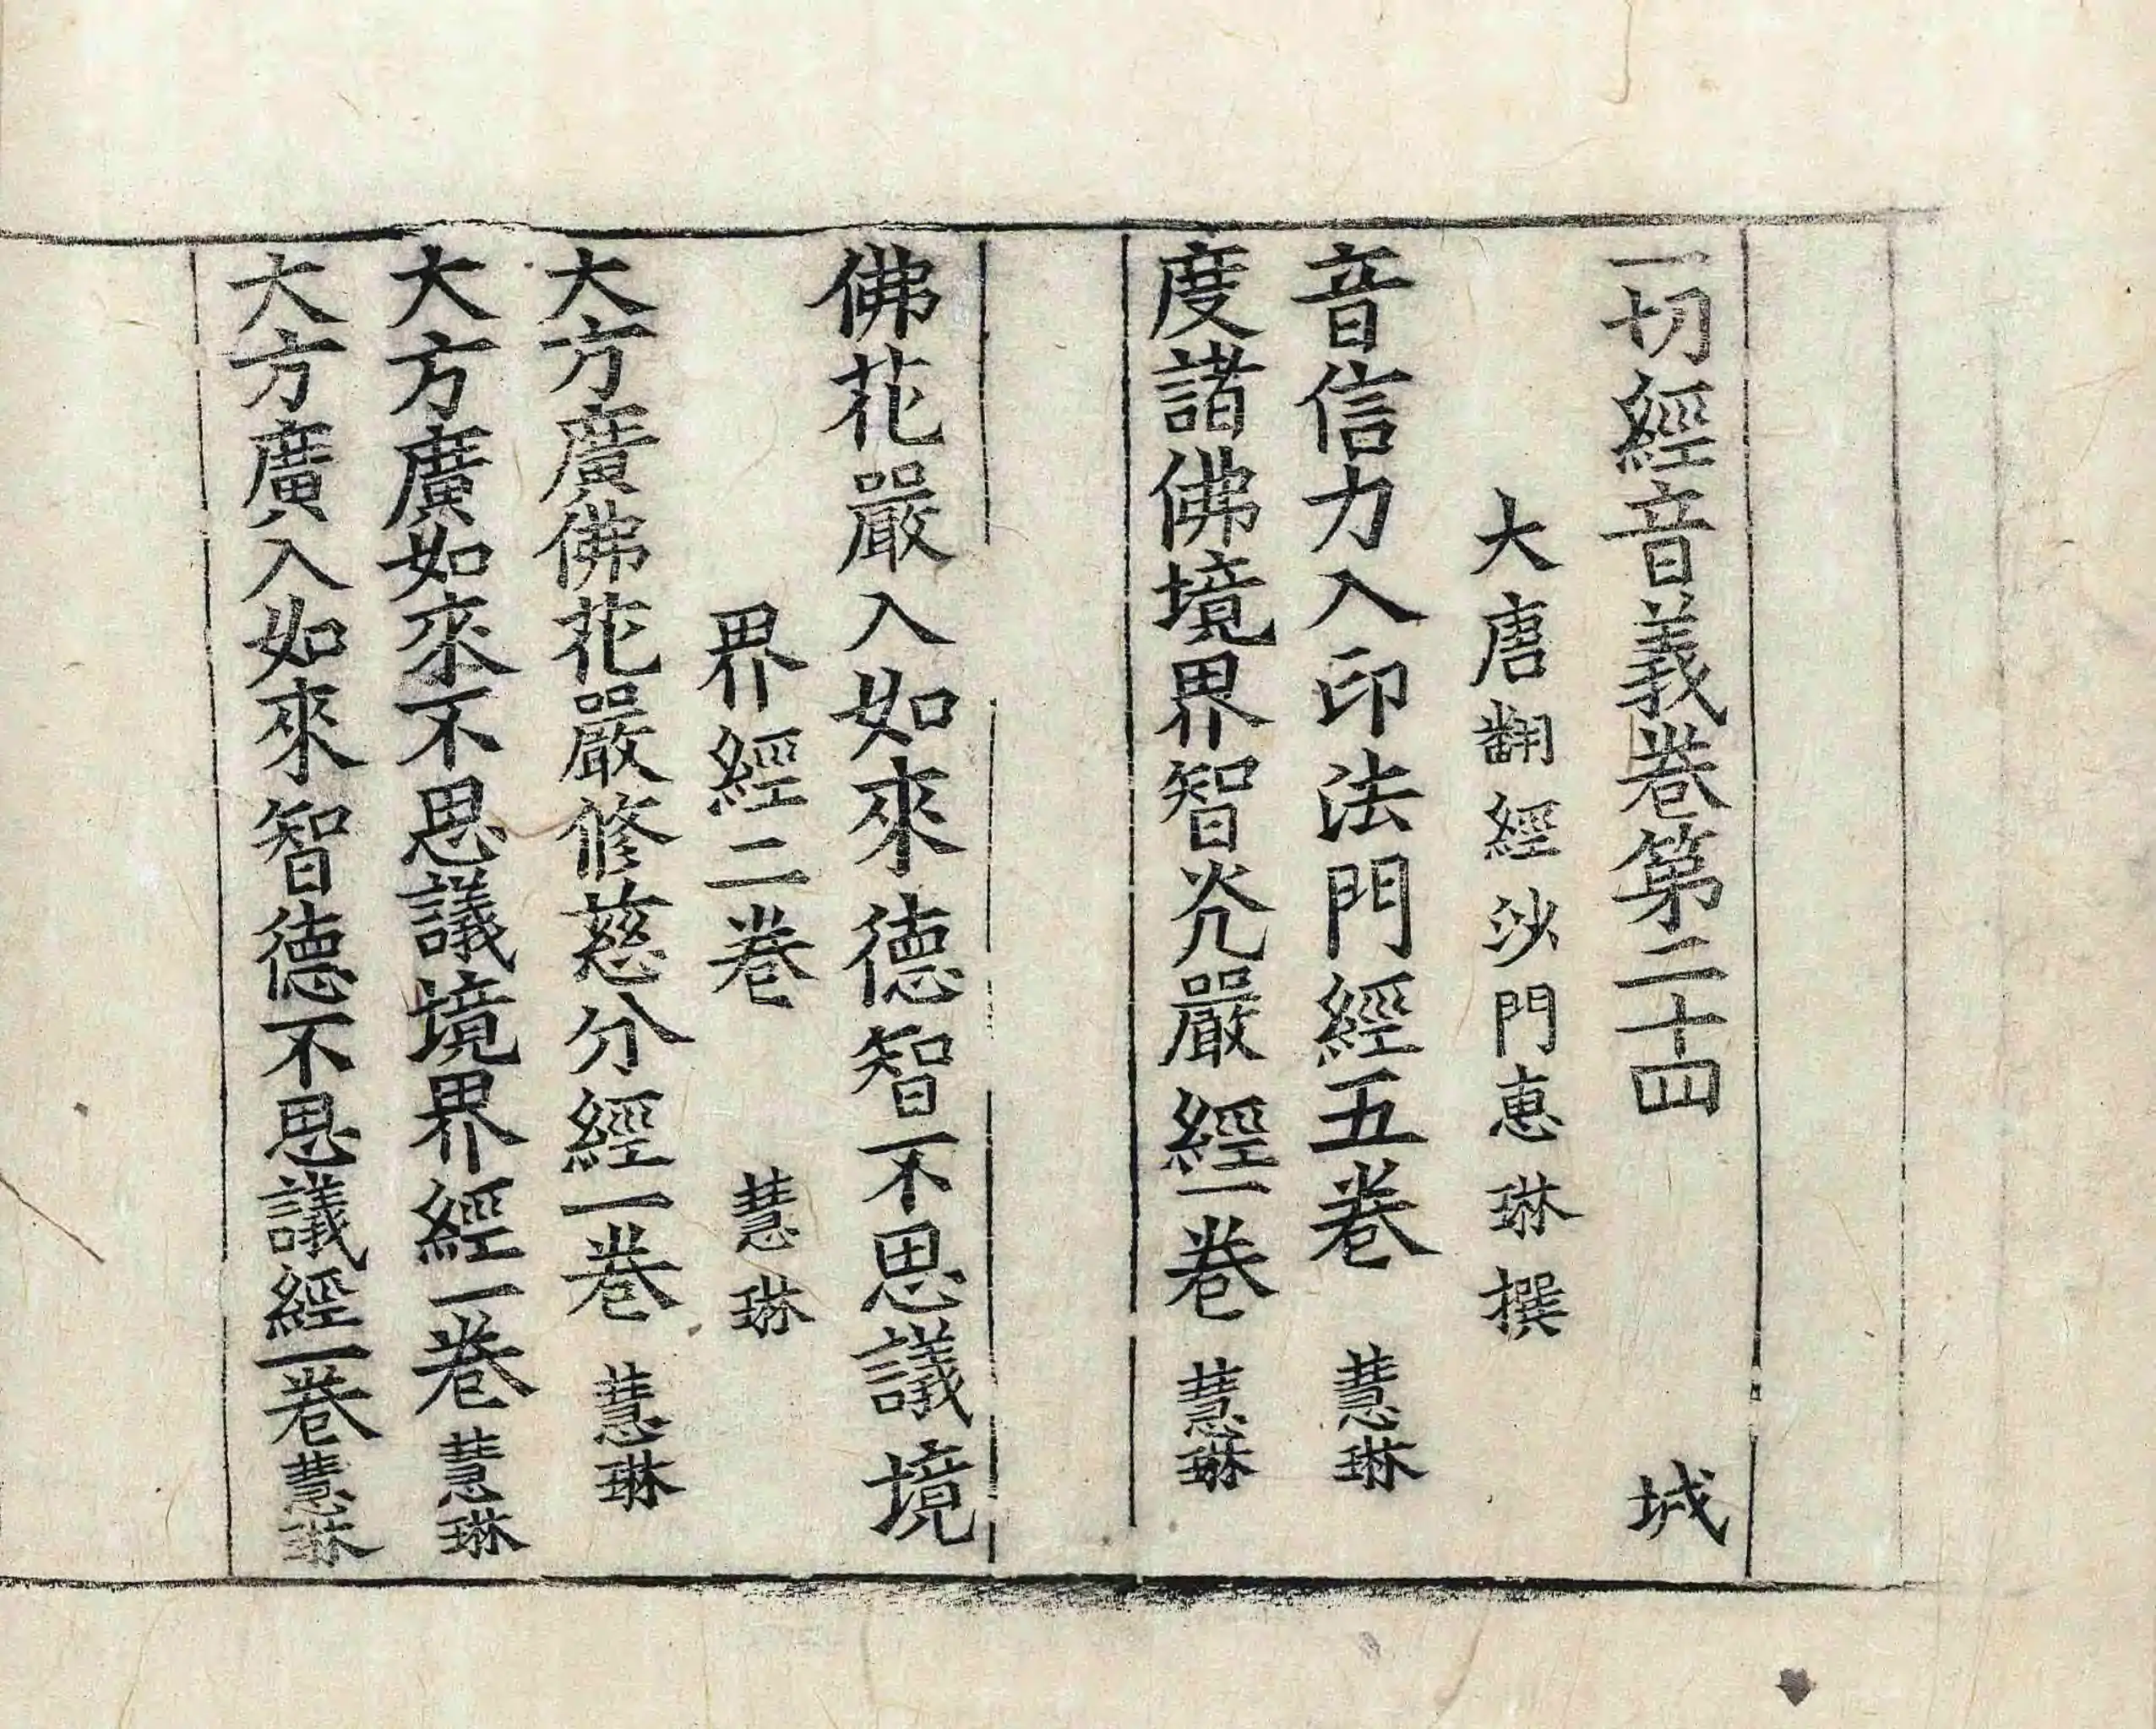 一切經音義卷第二十四　城
大唐翻經沙門惠琳撰
音信力入印法門經五卷　慧琳
度諸佛境界智炗嚴經一卷　慧琳
佛花嚴入如來德智不思議境
界經二卷　慧琳
大方廣佛花嚴修慈分經一卷　慧琳
大方廣如來不思議境界經一卷　慧琳
大方廣入如來智德不思議經一卷　慧琳